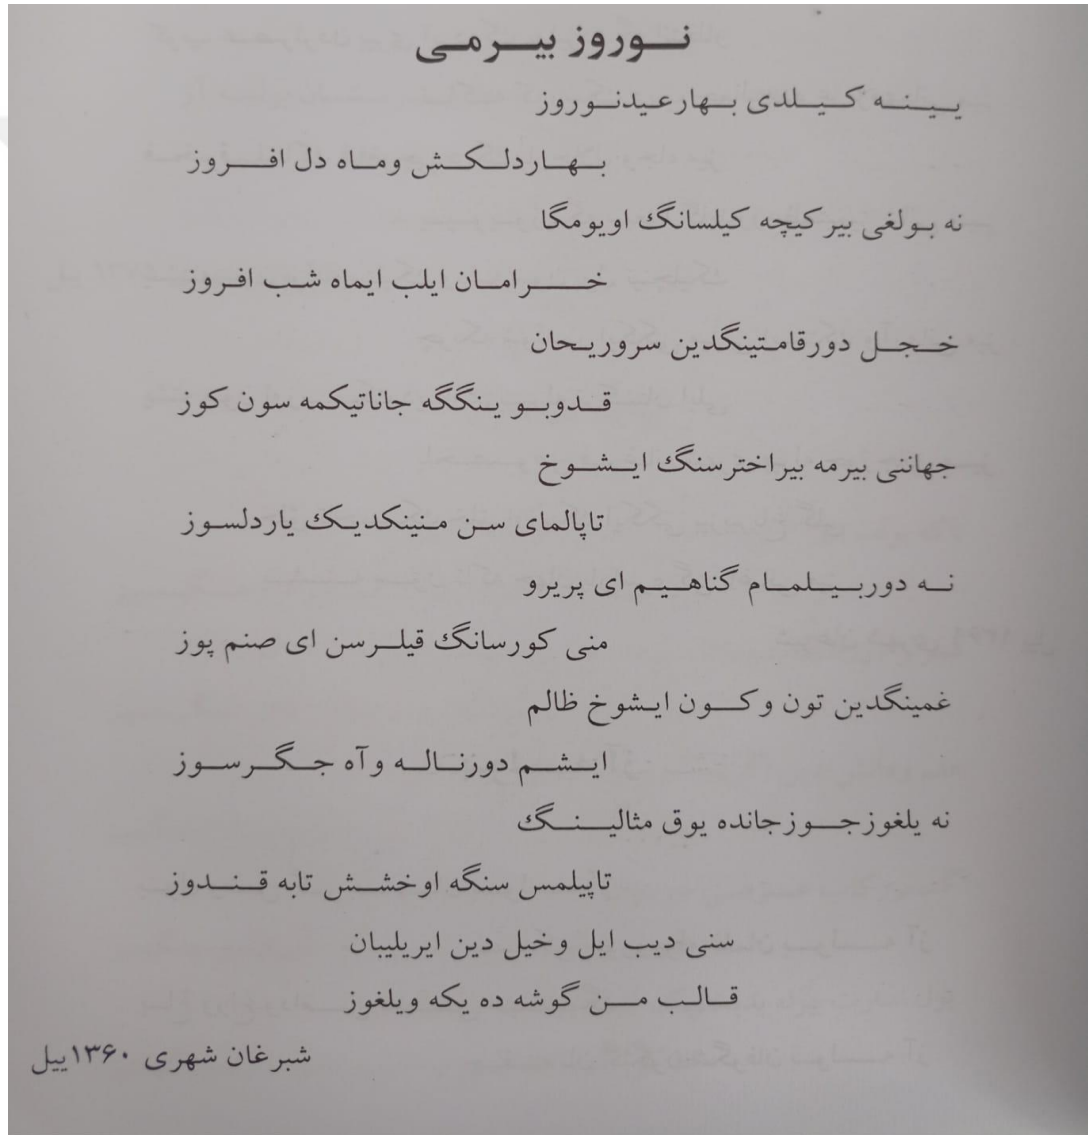 نوروز بیرمی
یینه کیلدی بهارعیدنوروز
بهاردلکش وماه دل افروز
نه بولغی بیرکیچه کیلسانگ اویومگا
خرامان ایلب ایماه شب افروز
خجل دورقامتینگدین سروریحان
قدوبو ینگگه جاناتیکمه سون کوز
جهاننی بیرمه بیراخترسنگ ایشوخ
تاپالمای سن منینکدیک یاردلسوز
نه دوربیلمام گناهیم ای پریرو
منی کورسانگ قیلرسن ای صنم پوز
غمینگدین تون وکون ایشوخ ظالم
ایشم دورناله وآه جگرسوز
نه یلغوزجوزجانده یوق مثالینگ
تاپیلمس سنگه اوخشش تابه قندوز
سنی دیب ایل وخیل دین ایریلیبان
قالب من گوشه ده یکه ویلغوز
شبرغان شهری ۱۳۶۰ییل